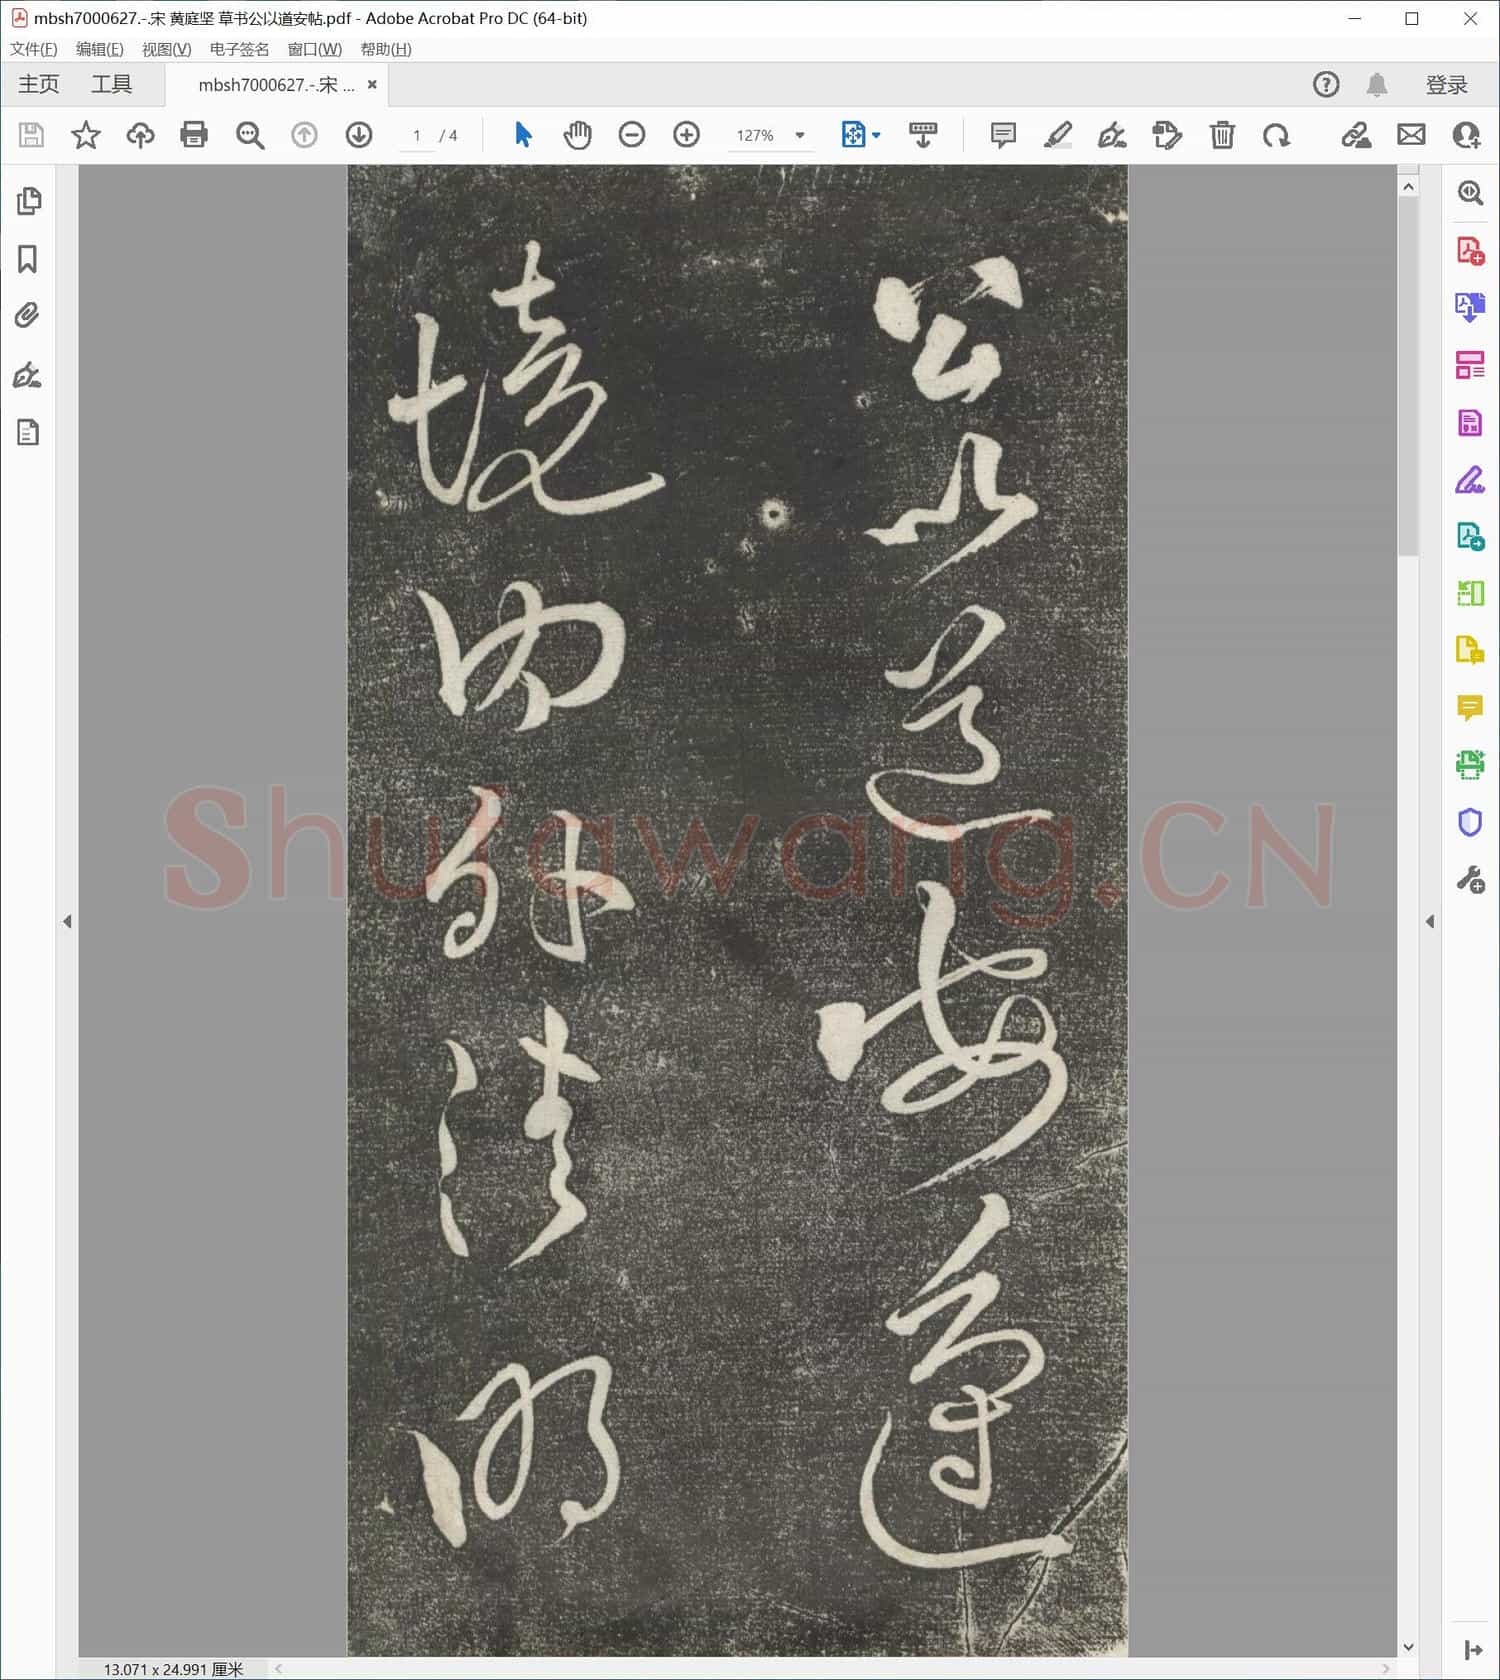 mbsh7000627.-.宋 黄庭坚 草书公以道安帖.pdf - Adobe Acrobat Pro DC (64-bit)
文件(F) 编辑(E) 视图(V) 电子签名 窗口(W) 帮助(H)
主页 工具 mbsh7000627.-.宋 ... 登录
1 / 4 127%
公以道安邊
境内外清明
Shufawang.CN
13.071 x 24.991 厘米